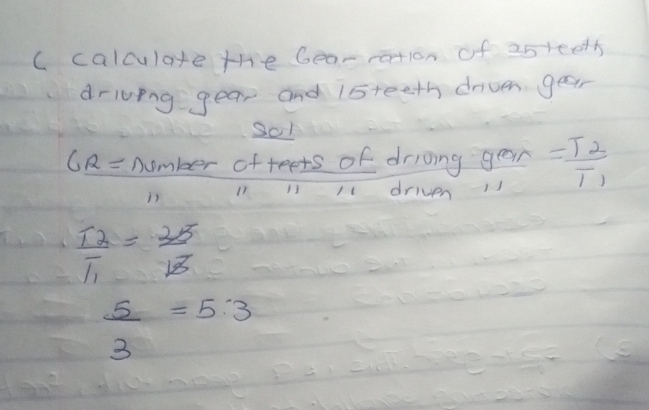 C calculate the Gear ration of 25 teeth
driving gear and 15 teeth driven gear
Sol
GR = number of teets of driving gear = T2
" " " " driven " T1
T2 = 25
T1 15
5 = 5:3
3